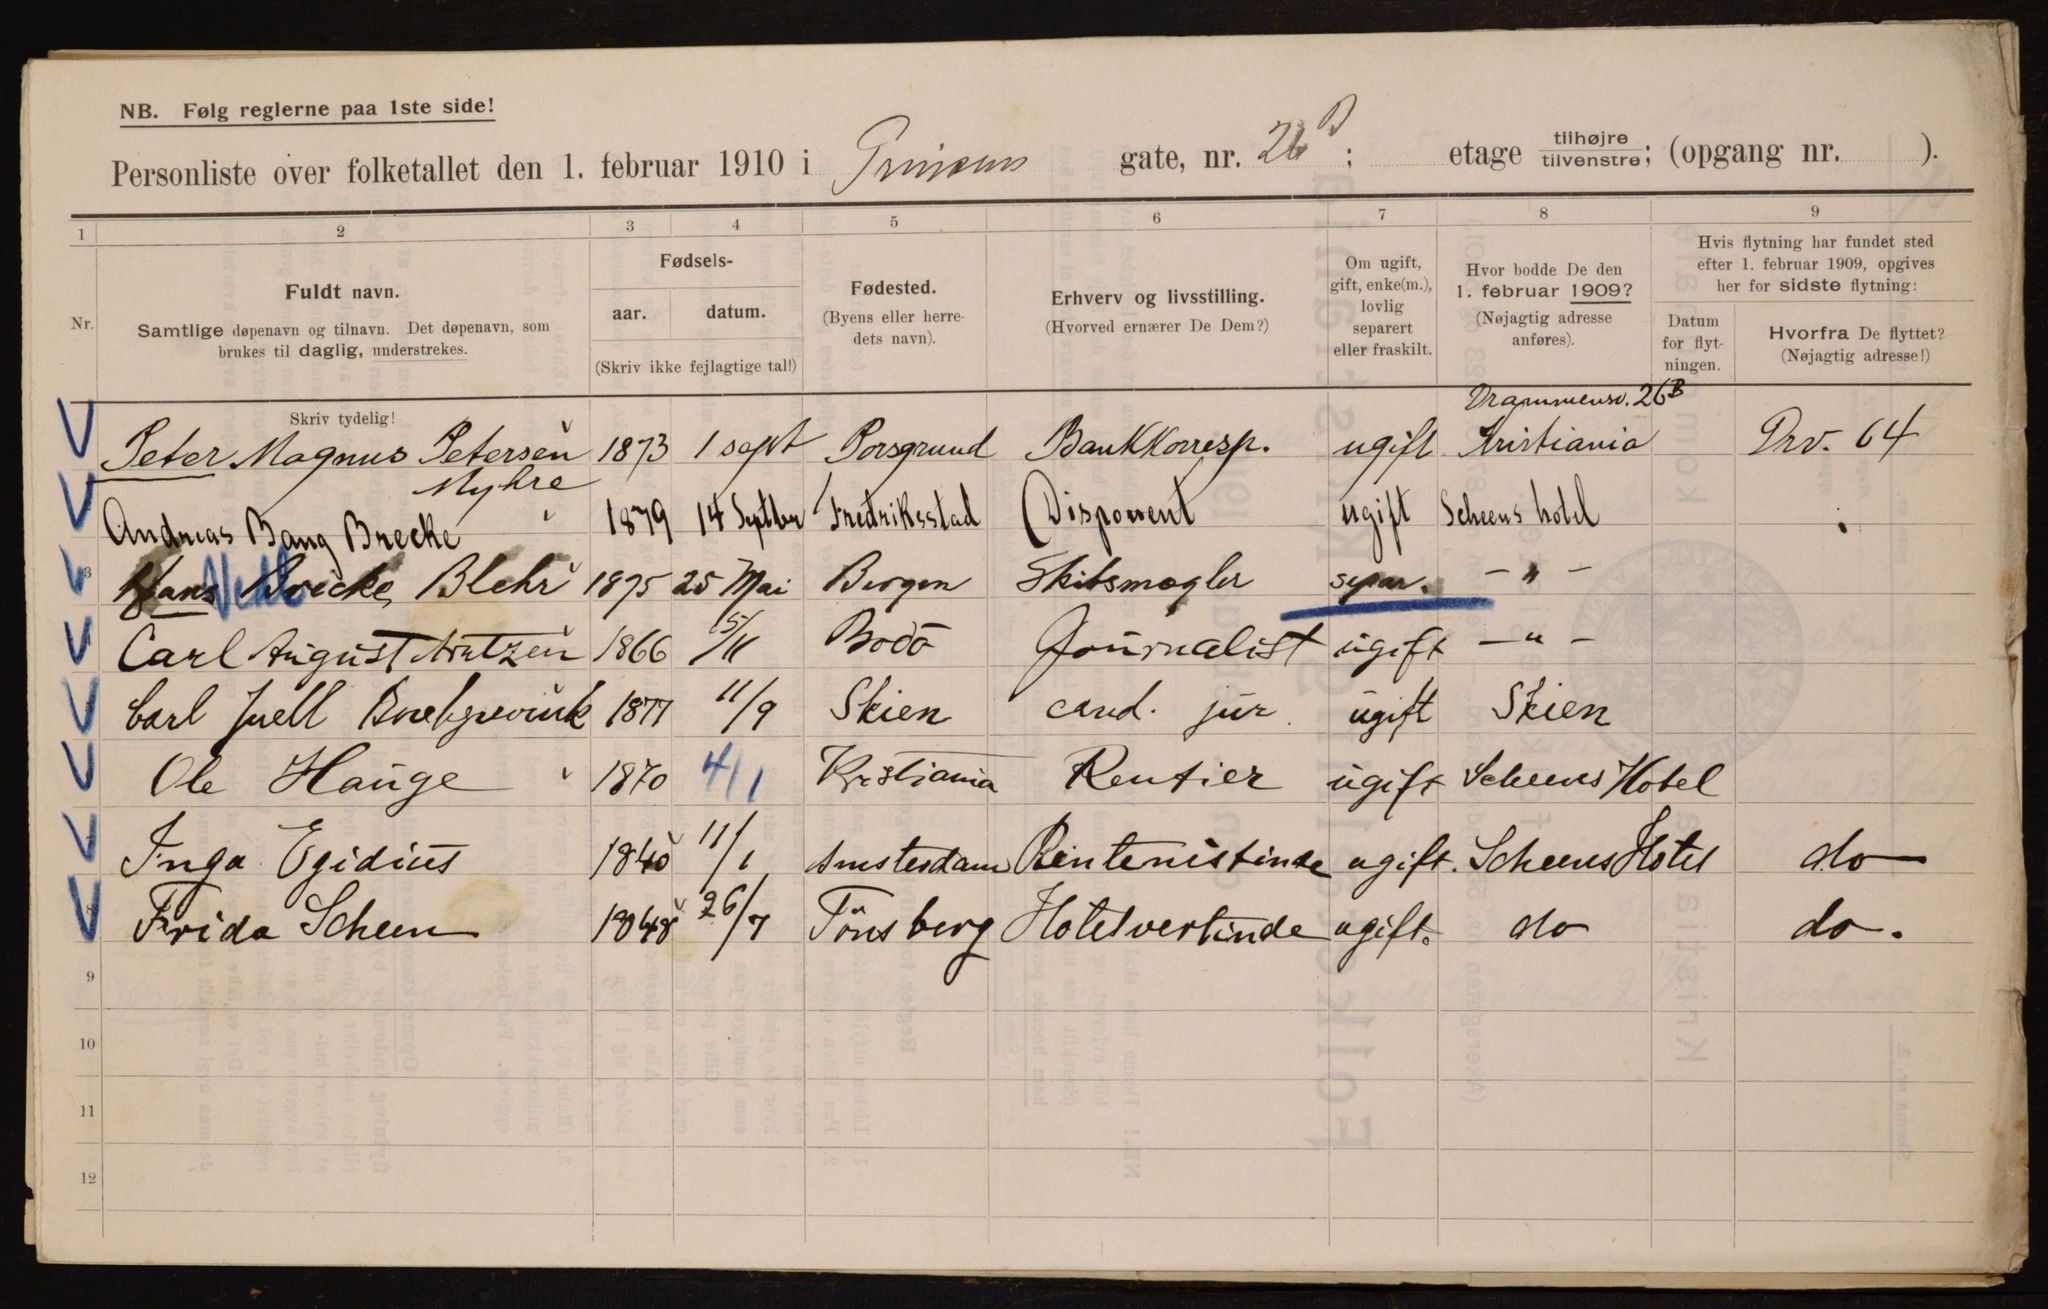 NB. Følg reglerne paa 1ste side!
Personliste over folketallet den 1. februar 1910 i Prinsens gate, nr. 26 B; etage tilhøjre tilvenstre; (opgang nr. ).
1 2 3 4 5 6 7 8 9
Nr.
Fuldt navn.
Samtlige døpenavn og tilnavn. Det døpenavn, som
brukes til daglig, understrekes.
Skriv tydelig!
Fødsels-
aar. datum.
(Skriv ikke fejlagtige tal!)
Fødested.
(Byens eller herre-
dets navn).
Erhverv og livsstilling.
(Hvorved ernærer De Dem?)
Om ugift,
gift, enke(m.),
lovlig
separert
eller fraskilt.
Hvor bodde De den
1. februar 1909?
(Nøjagtig adresse
anføres).
Hvis flytning har fundet sted
efter 1. februar 1909, opgives
her for sidste flytning:
Datum
for flyt-
ningen.
Hvorfra De flyttet?
(Nøjagtig adresse!)
Drammensv. 26B
Peter Magnus Petersen 1873 1 sept Porsgrund Bankkorresp. ugift Kristiania Drv. 64
Myhre
Andreas Bang Brecke 1879 14 Septbr Fredriksstad Disponent ugift Scheens hotel
3 Hans Brecke Blehr 1875 25 Mai Bergen Skibsmægler separ. – " –
Carl August Arntzen 1866 5/11 Bodö Journalist ugift – " –
Carl Juell 1877 11/9 Skien cand. jur. ugift Skien
Ole Hauge 1870 4/1 Kristiania Rentier ugift Scheens Hotel
Inga Egidius 1840 11/1 Amsterdam Rentenistinde ugift. Scheens Hotel do
8 Frida Scheen 1848 26/7 Tönsberg Hotelvertinde ugift. do do.
9
10
11
12